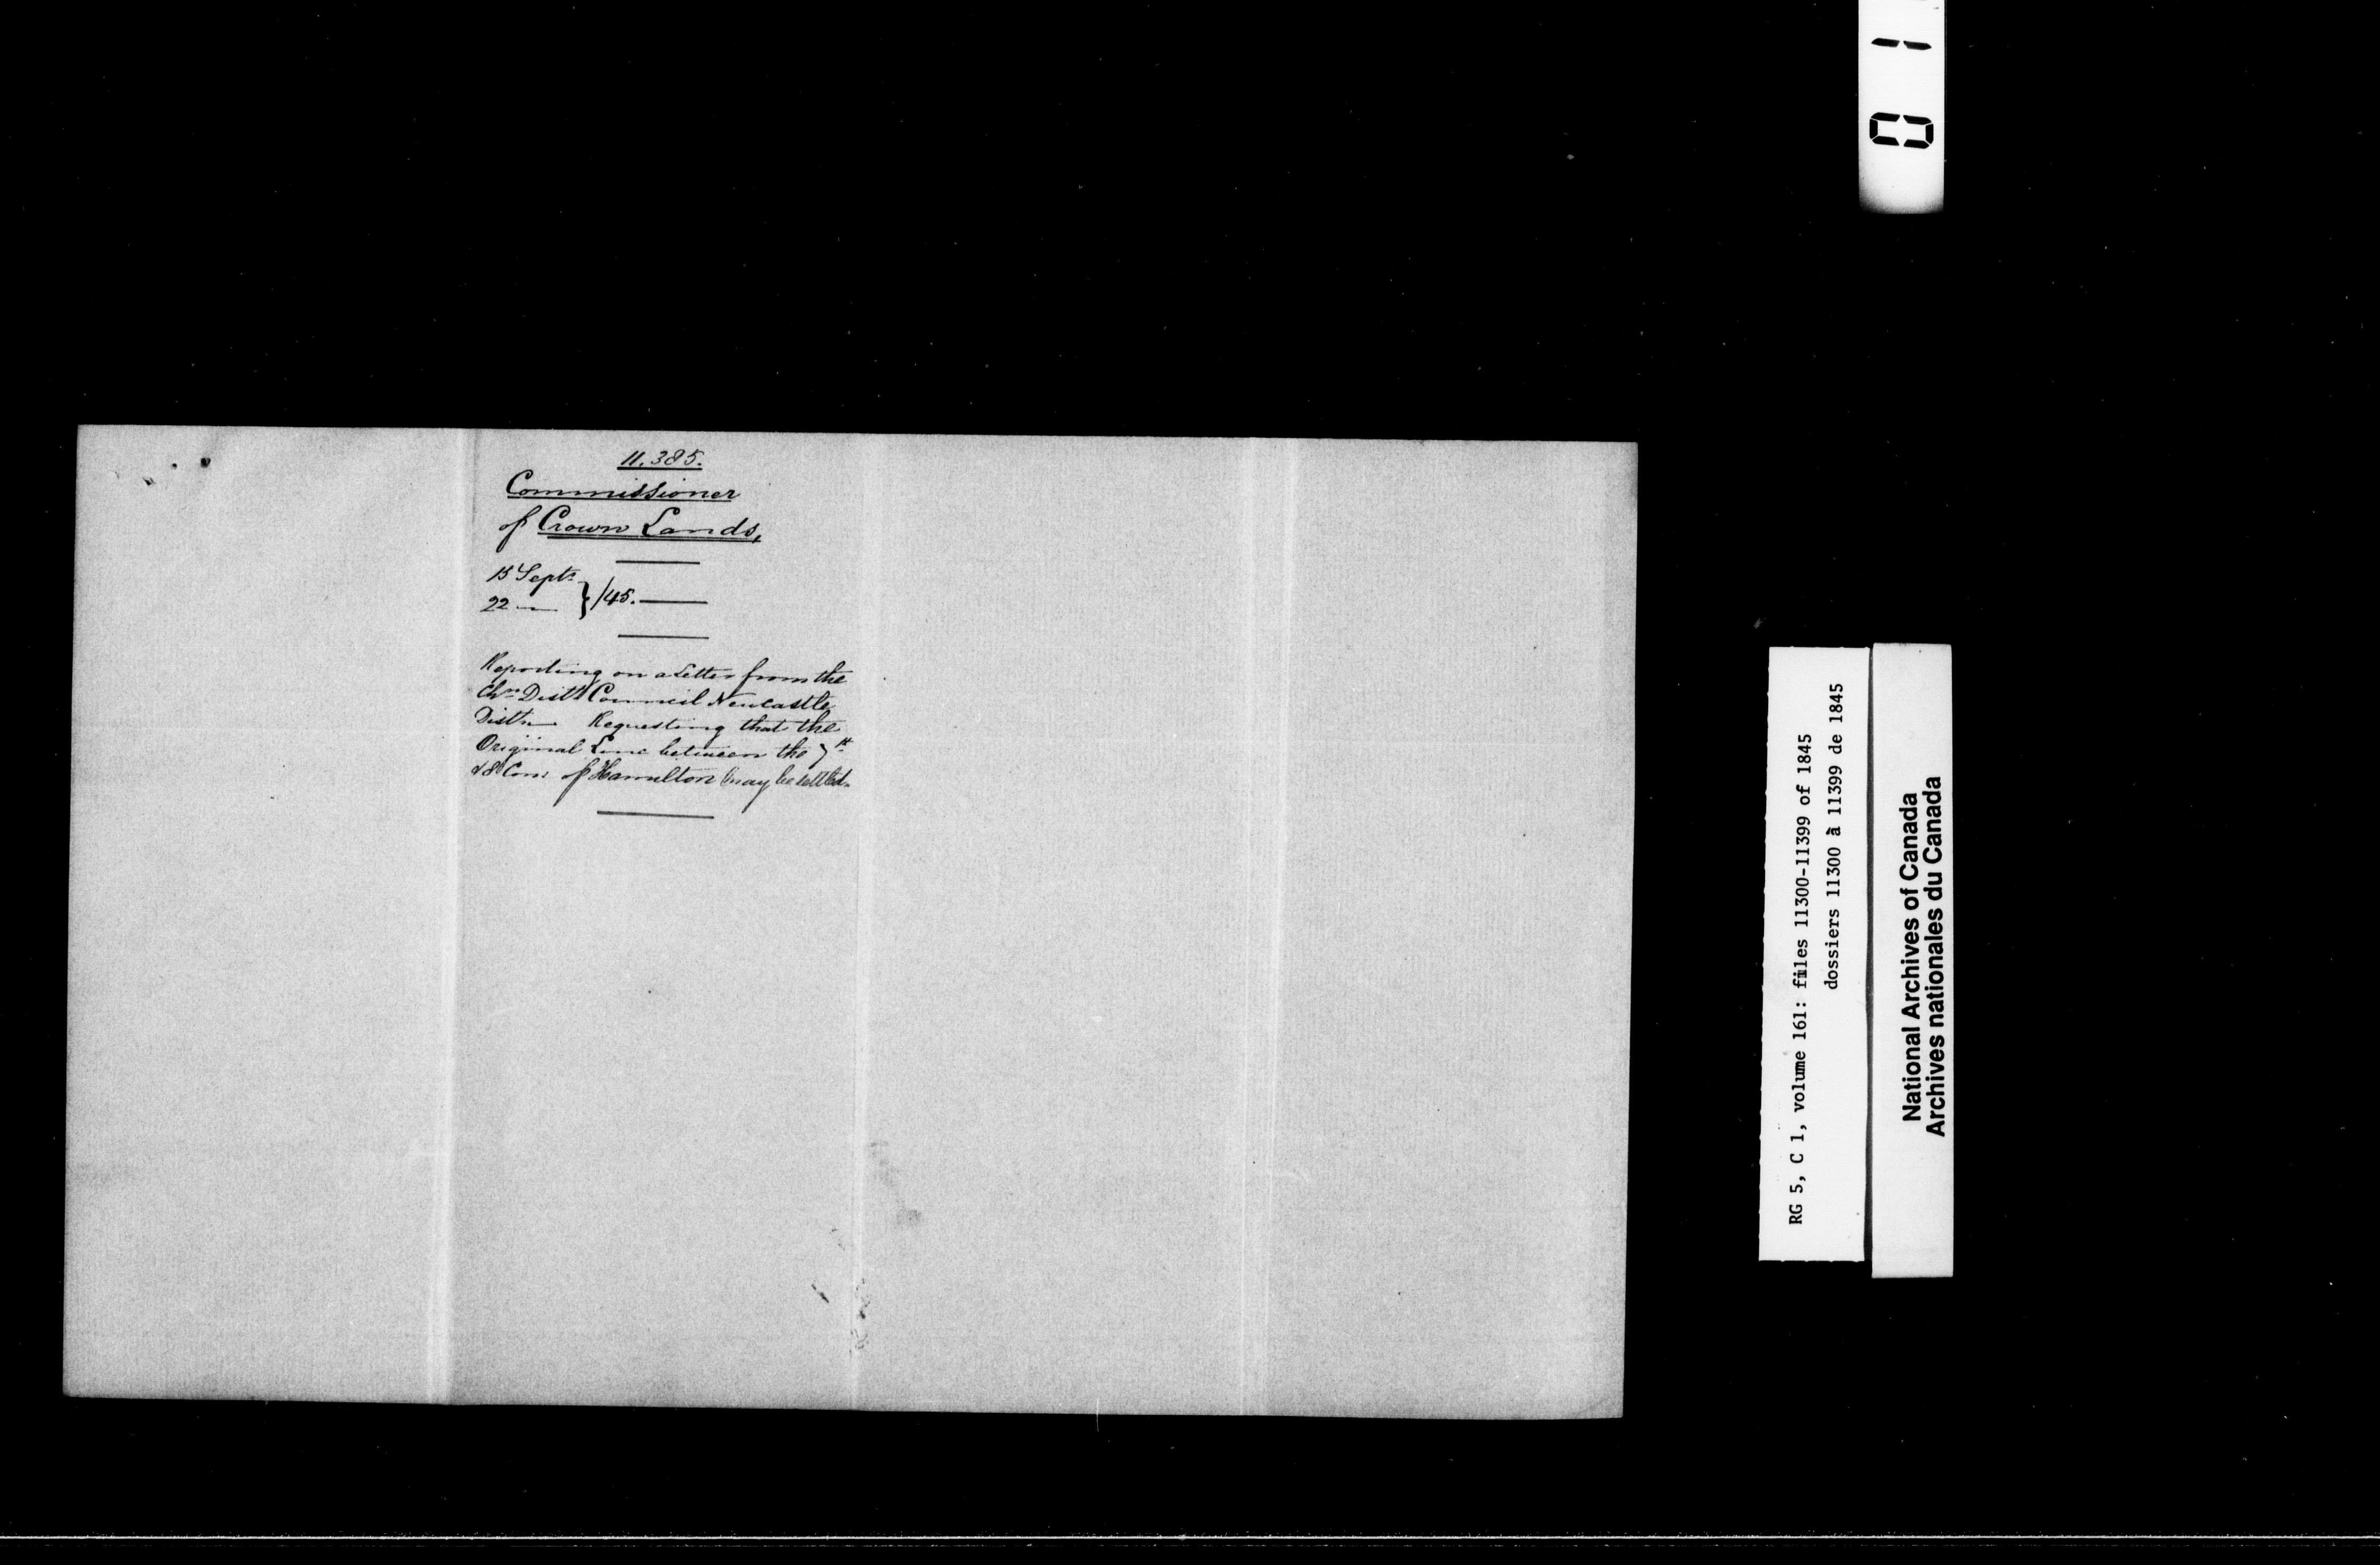 11.385.
Commissioner
of Crown Lands,
15 Septr
22 — } /45. —
Reporting on a Letter from the
Chn Distt Council Newcastle
Distr — Requesting that the
Original Line between the 7th
& 8 Cons of Hamilton may be settled.
01
RG 5, C 1, volume 161: files 11300-11399 of 1845
dossiers 11300 à 11399 de 1845
National Archives of Canada
Archives nationales du Canada